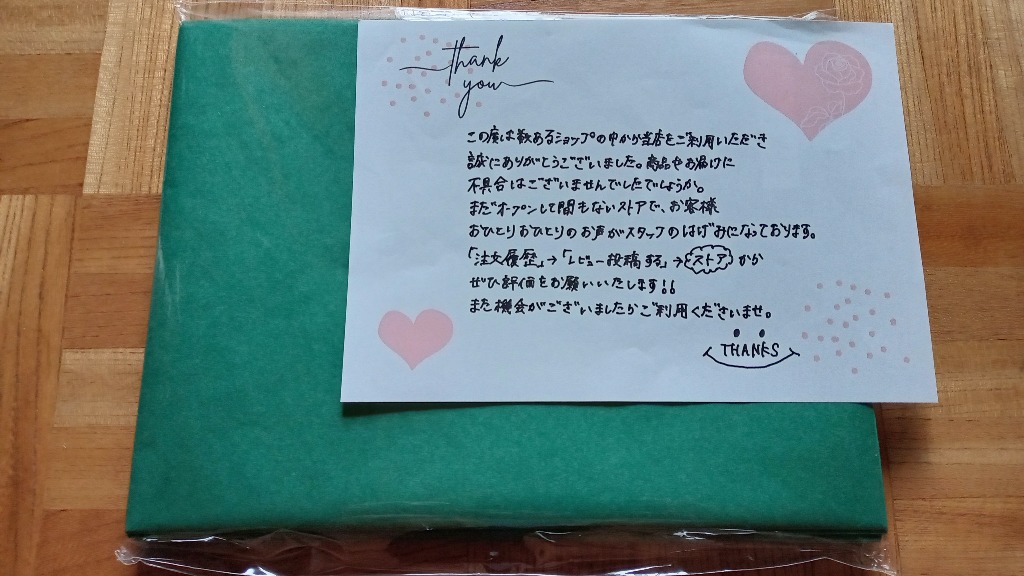 thank
you
この度は数あるショップの中から当店をご利用いただき
誠にありがとうございました。商品やお届けに
不具合はございませんでしたでしょうか。
まだオープンして間もないストアで、お客様
おひとりおひとりのお声がスタッフのはげみになっております。
「注文履歴」→「レビュー投稿する」→ストアから
ぜひ評価をお願いいたします!!
また機会がございましたらご利用くださいませ。
THANKS